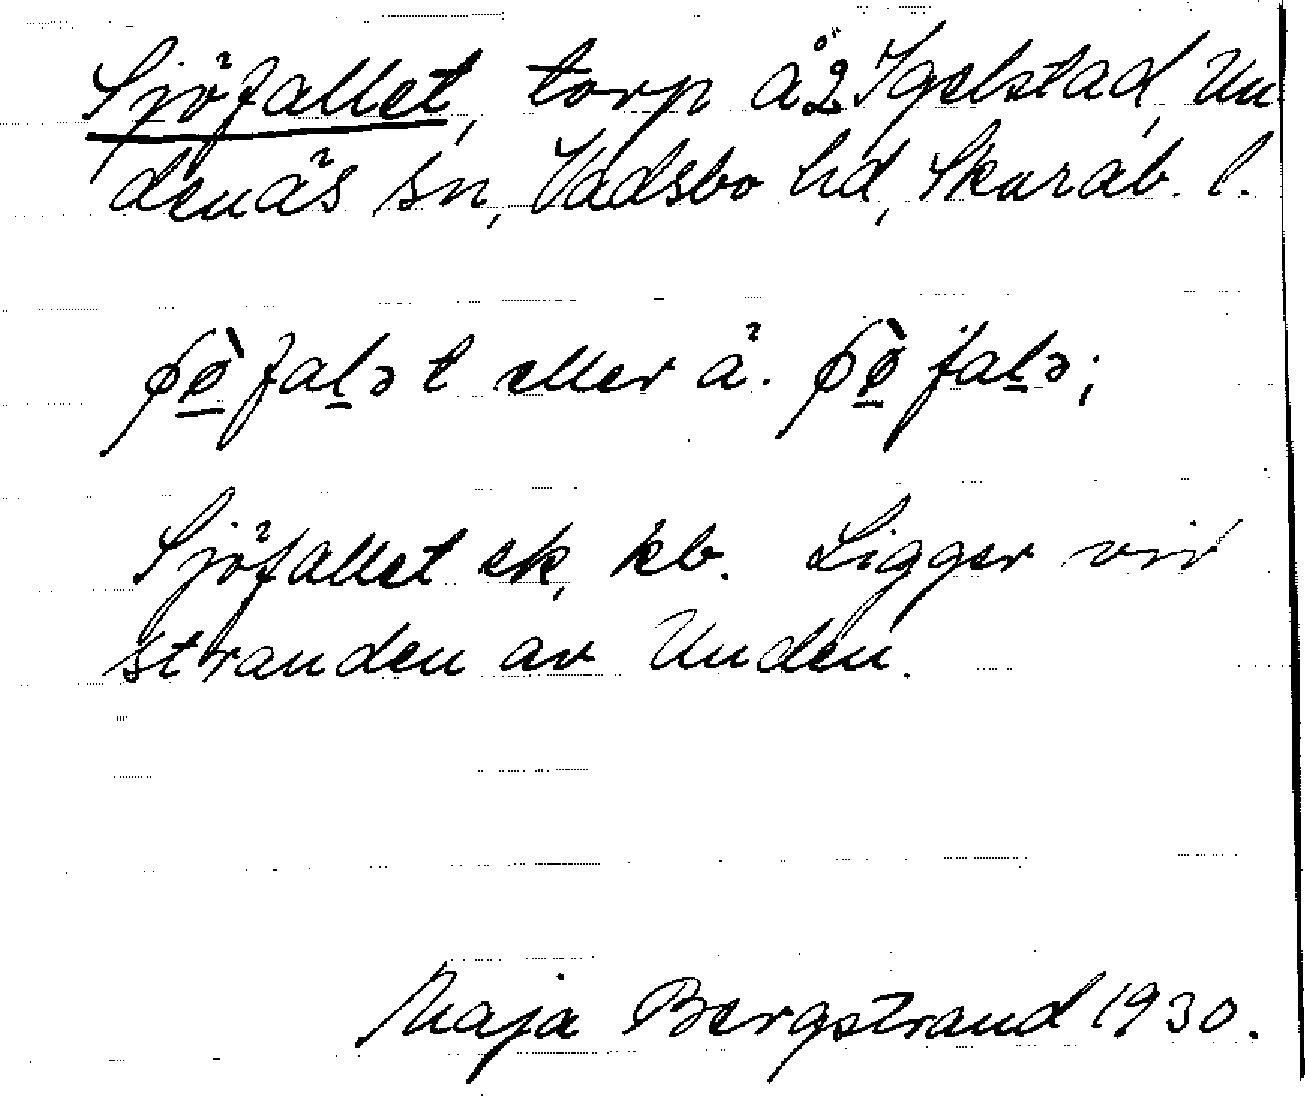 Sjöfallet, torp å 2 Igelstad, Un
denäs sn, Vadsbo hd, Skarab. l.
eller å.
Sjöfallet ek, kb. Ligger vid
stranden av Unden.
Maja Bergstrand 1930.